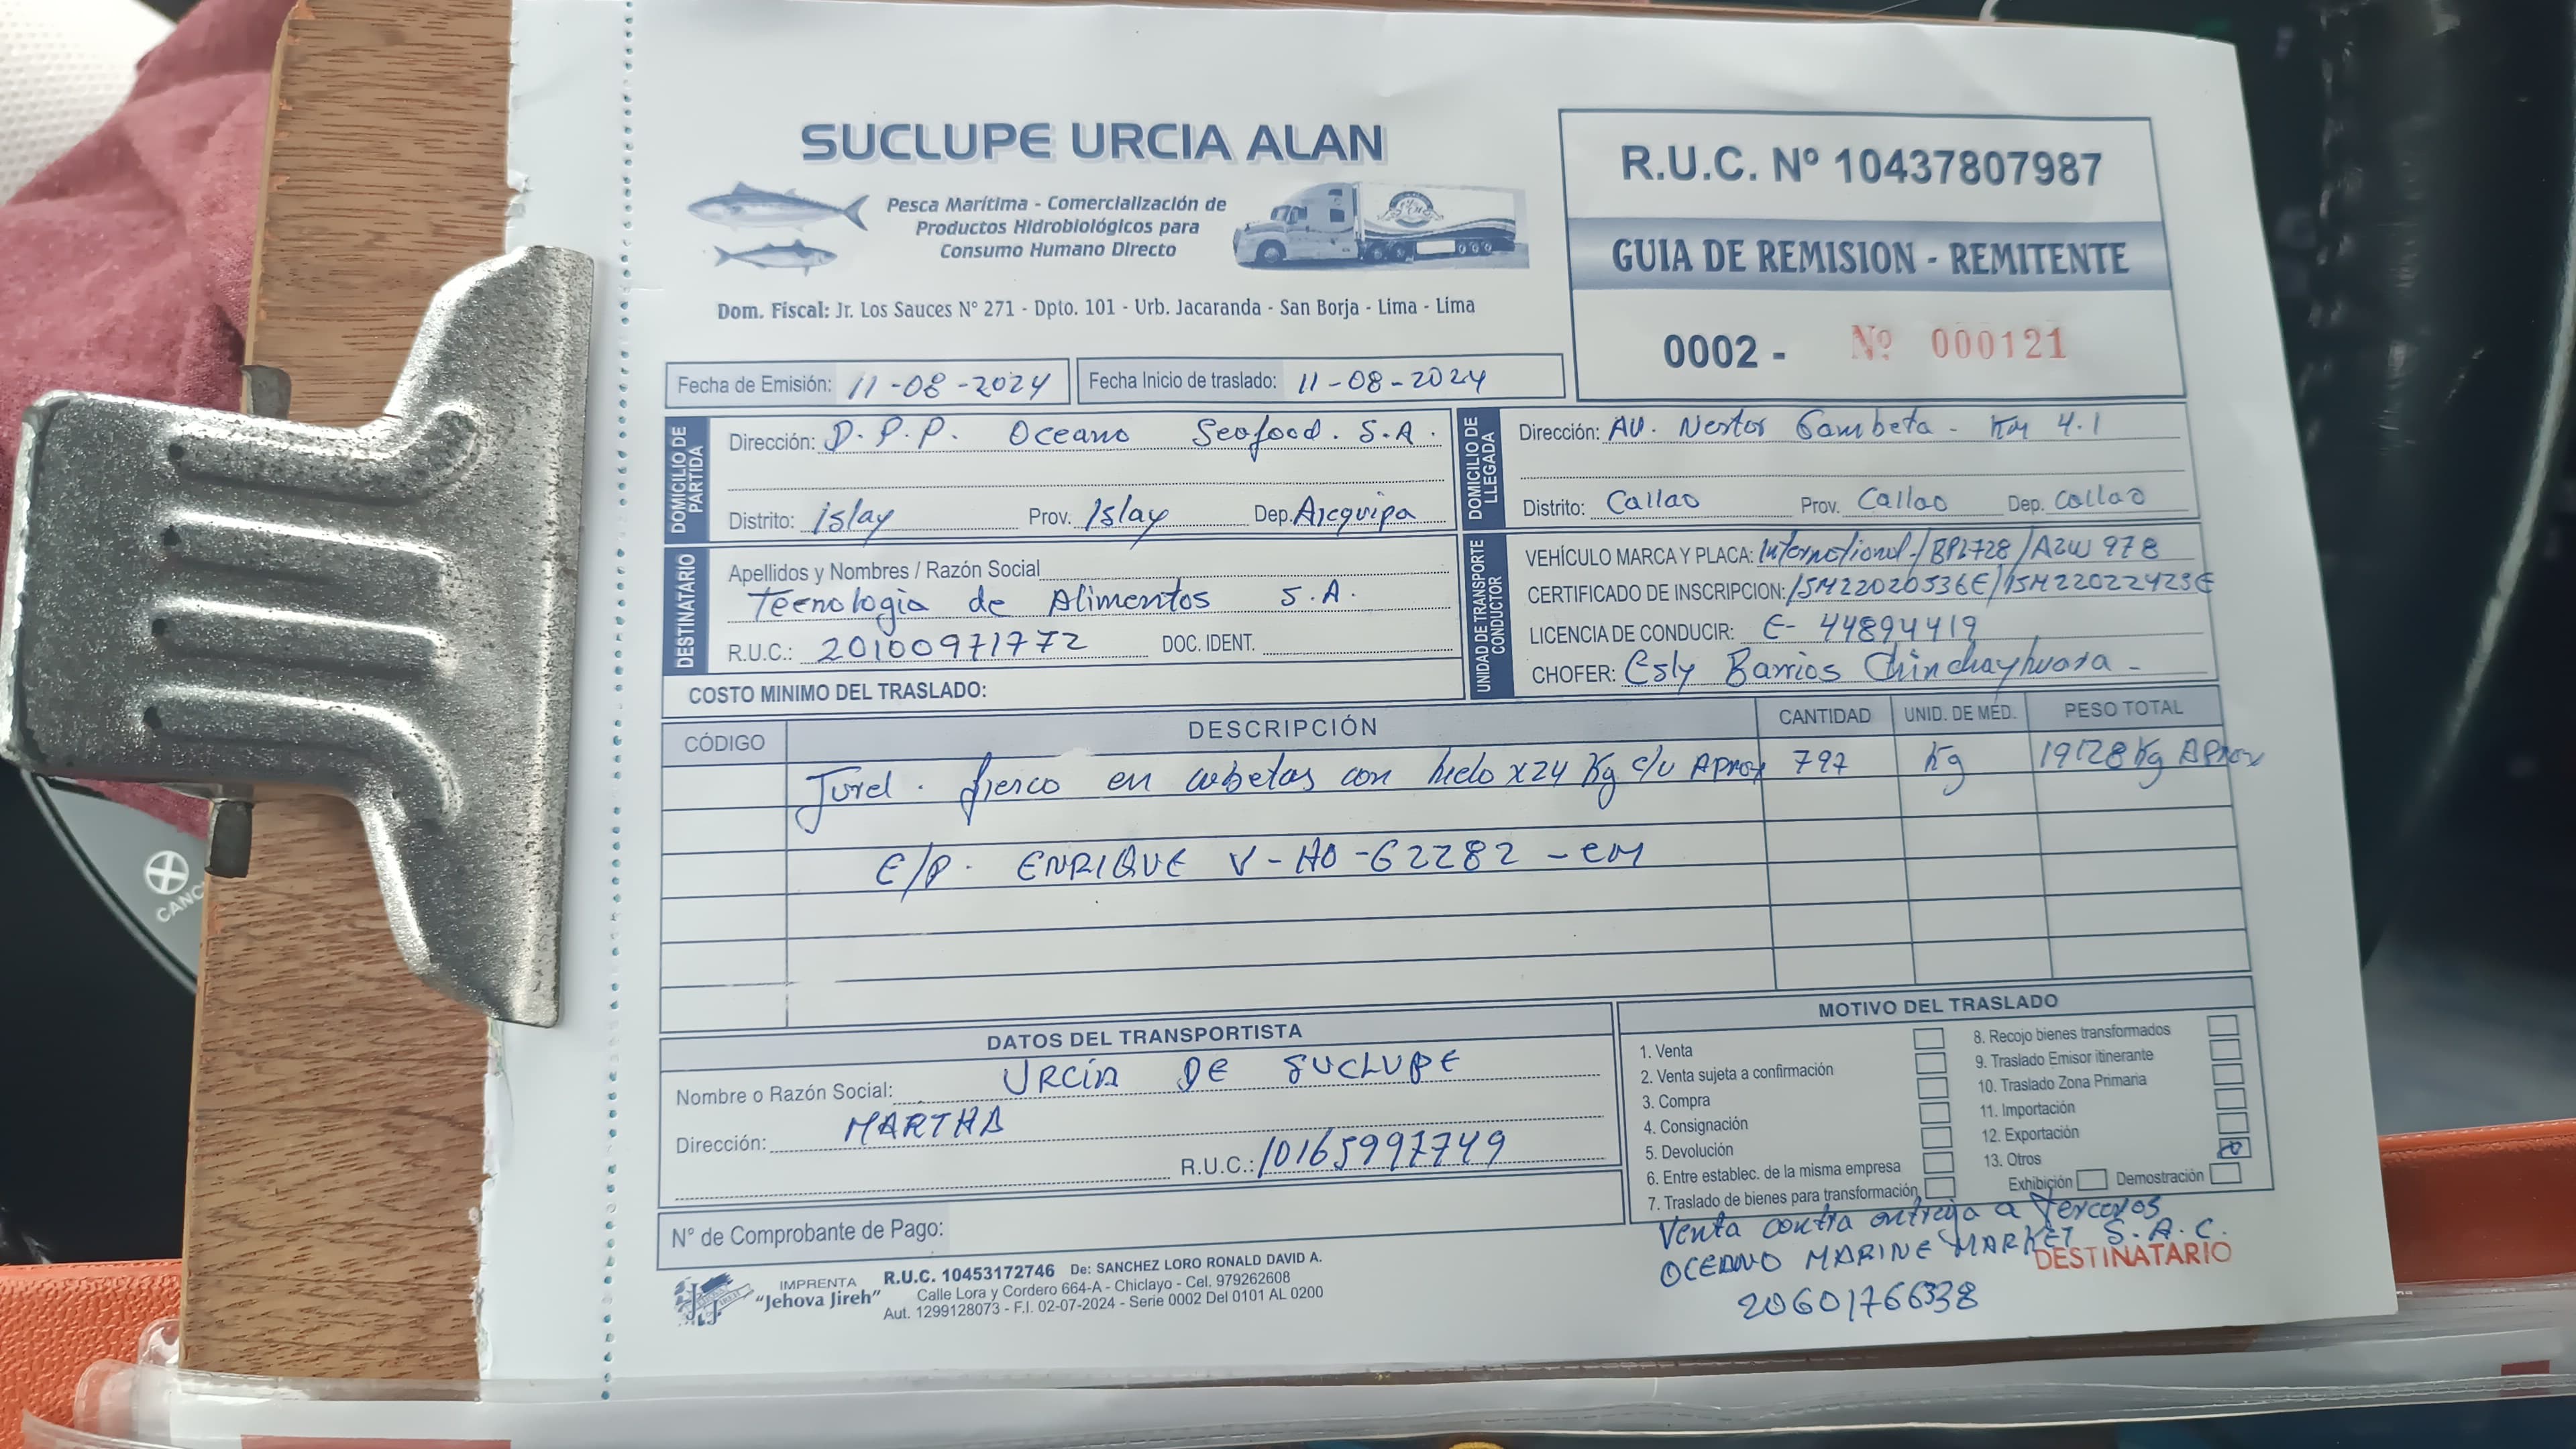 SUCLUPE URCIA ALAN
Pesca Marítima - Comercialización de
Productos Hidrobiológicos para
Consumo Humano Directo
Dom. Fiscal: Jr. Los Sauces N° 271 - Dpto. 101 - Urb. Jacaranda - San Borja - Lima - Lima
R.U.C. Nº 10437807987
GUIA DE REMISION - REMITENTE
0002 - Nº 000121
Fecha de Emisión: 11-08-2024
Fecha Inicio de traslado: 11-08-2024
DOMICILIO DE PARTIDA
Dirección: D.P.P. Oceano Seafood. S.A.
Distrito: islay Prov. Islay Dep. Arequipa
DOMICILIO DE LLEGADA
Dirección: AU. Nestor Gambeta - Km 4.1
Distrito: Callao Prov. Callao Dep. Callao
DESTINATARIO
Apellidos y Nombres / Razón Social
Tecnologia de Alimentos S.A.
R.U.C.: 20100971772 DOC. IDENT.
COSTO MINIMO DEL TRASLADO:
UNIDAD DE TRANSPORTE CONDUCTOR
VEHÍCULO MARCA Y PLACA: International / BPL728 / AZW 978
CERTIFICADO DE INSCRIPCION: 15M22020536E/15M22022423E
LICENCIA DE CONDUCIR: E- 44894419
CHOFER: Esly Barrios Chinchayhuara -
CÓDIGO DESCRIPCIÓN CANTIDAD UNID. DE MED. PESO TOTAL
Jurel . fresco en cubetas con hielo x24 Kg c/u Aprox 797 Kg 19128 Kg Aprox
E/P. ENRIQUE V - HO - 62282 - CM
DATOS DEL TRANSPORTISTA
Nombre o Razón Social: URCIA DE SUCLUPE
Dirección: MARTHA
R.U.C.: 10165997749
N° de Comprobante de Pago:
MOTIVO DEL TRASLADO
1. Venta
2. Venta sujeta a confirmación
3. Compra
4. Consignación
5. Devolución
6. Entre establec. de la misma empresa
7. Traslado de bienes para transformación
8. Recojo bienes transformados
9. Traslado Emisor itinerante
10. Traslado Zona Primaria
11. Importación
12. Exportación
13. Otros
Exhibición Demostración
Venta contra entrega a Terceros
OCEANO MARINE MARKET S.A.C.
DESTINATARIO
20601766338
IMPRENTA
"Jehova Jireh"
R.U.C. 10453172746 De: SANCHEZ LORO RONALD DAVID A.
Calle Lora y Cordero 664-A - Chiclayo - Cel. 979262608
Aut. 1299128073 - F.I. 02-07-2024 - Serie 0002 Del 0101 AL 0200
CANC